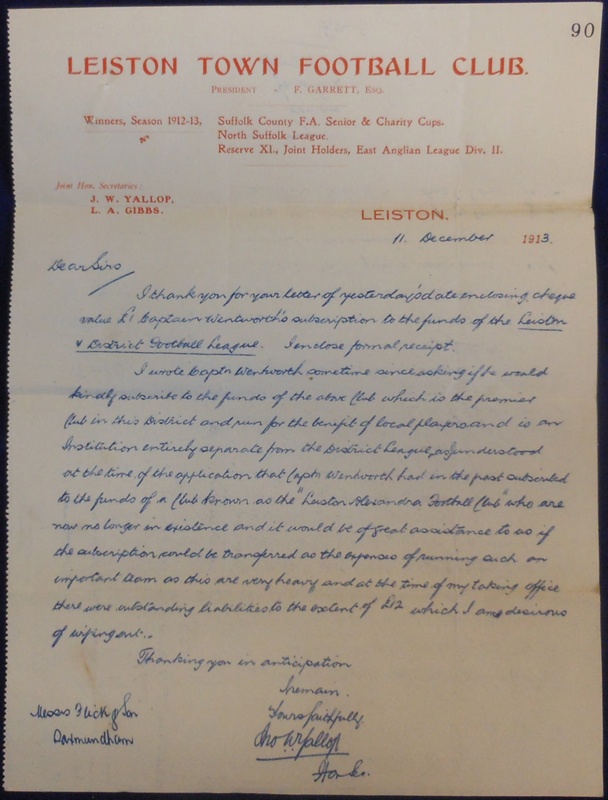 90
LEISTON TOWN FOOTBALL CLUB.
PRESIDENT F. GARRETT, ESQ.
Winners, Season 1912-13, Suffolk County F.A. Senior & Charity Cups.
North Suffolk League.
Reserve XI., Joint Holders, East Anglian League Div. II.
Joint Hon. Secretaries.
J. W. YALLOP,
L. A. GIBBS.
LEISTON,
11 December 1913.
Dear Sirs
I thank you for your letter of yesterday's date enclosing cheque
value £1 Captain Wentworth's subscription to the funds of the Leiston
& District Football League. I enclose formal receipt.
I wrote Captn Wentworth sometime since asking if he would
kindly subscribe to the funds of the above Club which is the premier
Club in this District and run for the benefit of local players and is an
Institution entirely separate from the District League, as I understood
at the time of the application that Captn Wentworth had in the past subscribed
to the funds of a Club known as the "Leiston Alexandra Football Club" who are
now no longer in existence and it would be of great assistance to us if
the subscription could be transferred as the expenses of running such an
important team as this are very heavy and at the time of my taking office
there were outstanding liabilities to the extent of £12 which I am desirous
of wiping out..
Thanking you in anticipation
I remain.
Yours faithfully
Jno W Yallop
Hon Sec.
Messrs Flick & Son
Saxmundham